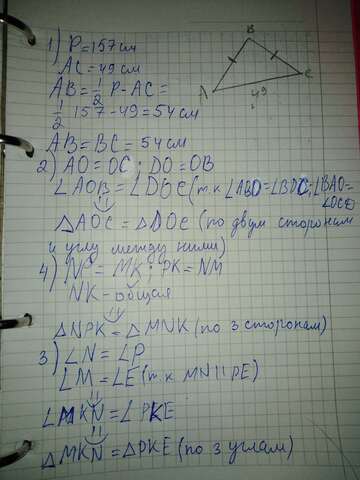 1) P = 157 см
AC = 49 см
AB = 1/2 P - AC =
1/2 157 - 49 = 54 см
AB = BC = 54 см
B
A
C
49
2) AO = OC; DO = OB
∠AOB = ∠DOC (т.к ∠ABD = ∠BDC; ∠BAO = ∠OCD
△AOC = △DOC (по двум сторонам
и углу между ними)
4) NP = MK; PK = NM
NK - общая
△NPK = △MNK (по 3 сторонам)
3) ∠N = ∠P
∠M = ∠E (т.к MN || PE)
∠MKN = ∠PKE
△MKN = △PKE (по 3 углам)